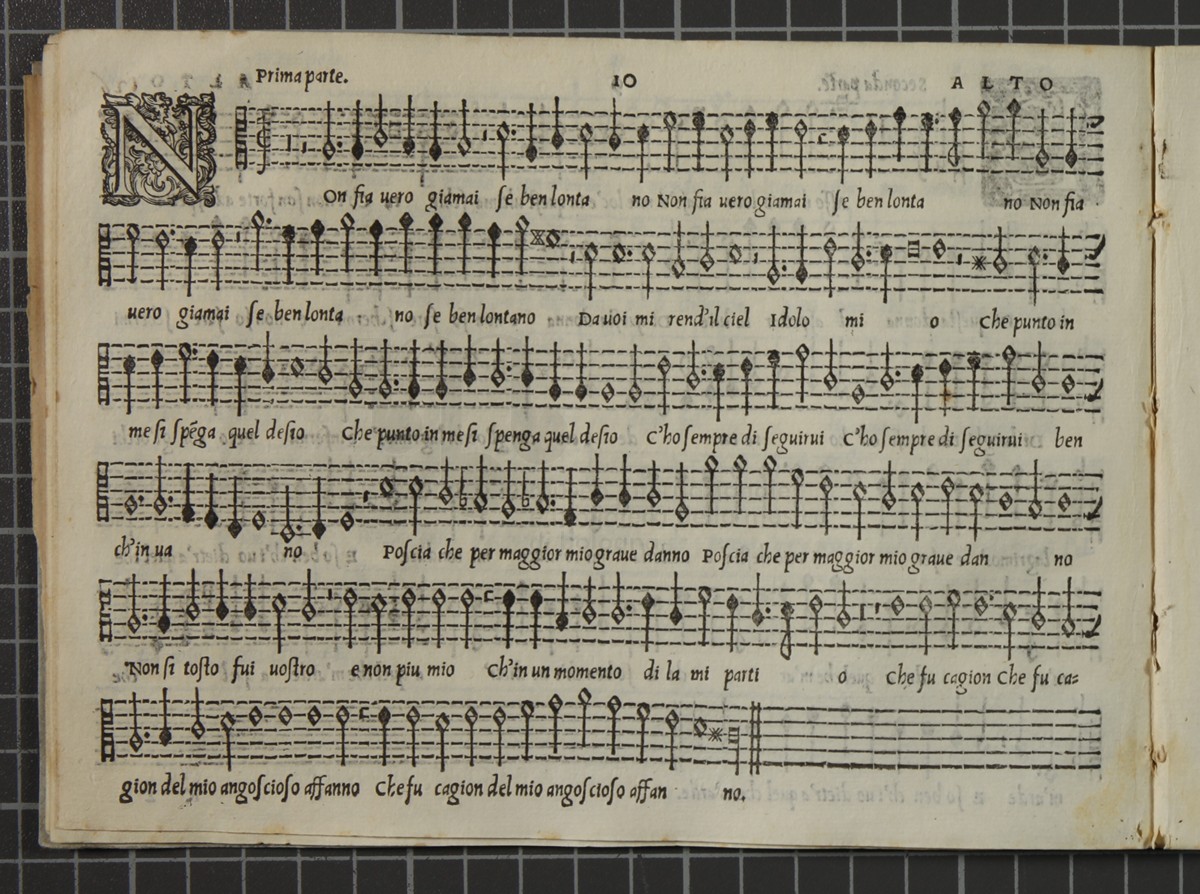 Prima parte. 10 ALTO
NOn fia uero giamai se ben lonta no Non fia uero giamai se ben lonta no Non fia
uero giamai se ben lonta no se ben lontano Da uoi mi rend'il ciel Idolo mi o Che punto in
me si spẽga quel desio Che punto in me si spenga quel desio C'ho sempre di seguirui C'ho sempre di seguirui ben
ch'in ua no Poscia che per maggior mio graue danno Poscia che per maggior mio graue dan no
Non si tosto fui uostro e non piu mio Ch'in un momento di la mi parti o Che fu cagion Che fu ca=
gion del mio angoscioso affanno Che fu cagion del mio angoscioso affan no.